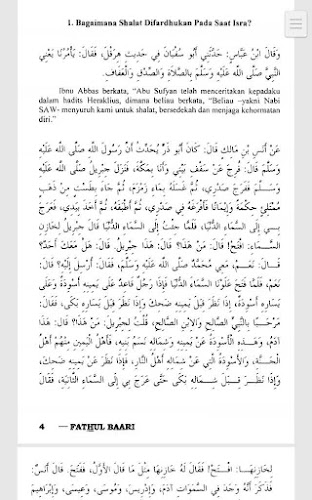 1. Bagaimana Shalat Difardhukan Pada Saat Isra?
وَقَالَ ابْنُ عَبَّاسٍ: حَدَّثَنِي أَبُو سُفْيَانَ فِي حَدِيثِ هِرَقْلَ، فَقَالَ: يَأْمُرُنَا يَعْنِي
النَّبِيَّ صَلَّى اللهُ عَلَيْهِ وَسَلَّمَ بِالصَّلاَةِ وَالصِّدْقِ وَالْعَفَافِ.
Ibnu Abbas berkata, "Abu Sufyan telah menceritakan kepadaku
dalam hadits Heraklius, dimana beliau berkata, "Beliau —yakni Nabi
SAW- menyuruh kami untuk shalat, bersedekah dan menjaga kehormatan
diri."
عَنْ أَنَسِ بْنِ مَالِكٍ قَالَ: كَانَ أَبُو ذَرٍّ يُحَدِّثُ أَنَّ رَسُولَ اللهِ صَلَّى اللهُ عَلَيْهِ
وَسَلَّمَ قَالَ: فُرِجَ عَنْ سَقْفِ بَيْتِي وَأَنَا بِمَكَّةَ، فَنَزَلَ جِبْرِيلُ صَلَّى اللهُ عَلَيْهِ
وَسَلَّمَ فَفَرَجَ صَدْرِي، ثُمَّ غَسَلَهُ بِمَاءِ زَمْزَمَ، ثُمَّ جَاءَ بِطَسْتٍ مِنْ ذَهَبٍ
مُمْتَلِئٍ حِكْمَةً وَإِيمَانًا فَأَفْرَغَهُ فِي صَدْرِي، ثُمَّ أَطْبَقَهُ، ثُمَّ أَخَذَ بِيَدِي، فَعَرَجَ
بِي إِلَى السَّمَاءِ الدُّنْيَا، فَلَمَّا جِئْتُ إِلَى السَّمَاءِ الدُّنْيَا قَالَ جِبْرِيلُ لِخَازِنِ
السَّمَاءِ: افْتَحْ! قَالَ: مَنْ هَذَا؟ قَالَ: هَذَا جِبْرِيلُ. قَالَ: هَلْ مَعَكَ أَحَدٌ؟
قَالَ: نَعَمْ، مَعِي مُحَمَّدٌ صَلَّى اللهُ عَلَيْهِ وَسَلَّمَ، فَقَالَ: أُرْسِلَ إِلَيْهِ؟ قَالَ:
نَعَمْ، فَلَمَّا فَتَحَ عَلَوْنَا السَّمَاءَ الدُّنْيَا فَإِذَا رَجُلٌ قَاعِدٌ عَلَى يَمِينِهِ أَسْوِدَةٌ وَعَلَى
يَسَارِهِ أَسْوِدَةٌ، إِذَا نَظَرَ قِبَلَ يَمِينِهِ ضَحِكَ وَإِذَا نَظَرَ قِبَلَ يَسَارِهِ بَكَى، فَقَالَ:
مَرْحَبًا بِالنَّبِيِّ الصَّالِحِ وَالاِبْنِ الصَّالِحِ، قُلْتُ لِجِبْرِيلَ: مَنْ هَذَا؟ قَالَ: هَذَا
آدَمُ، وَهَذِهِ الْأَسْوِدَةُ عَنْ يَمِينِهِ وَشِمَالِهِ نَسَمُ بَنِيهِ، فَأَهْلُ الْيَمِينِ مِنْهُمْ أَهْلُ
الْجَنَّةِ، وَالْأَسْوِدَةُ الَّتِي عَنْ شِمَالِهِ أَهْلُ النَّارِ، فَإِذَا نَظَرَ عَنْ يَمِينِهِ ضَحِكَ،
وَإِذَا نَظَرَ قِبَلَ شِمَالِهِ بَكَى حَتَّى عَرَجَ بِي إِلَى السَّمَاءِ الثَّانِيَةِ، فَقَالَ
4 — FATHUL BAARI
لِخَازِنِهَا: افْتَحْ! فَقَالَ لَهُ خَازِنُهَا مِثْلَ مَا قَالَ الْأَوَّلُ، فَفَتَحَ. قَالَ أَنَسٌ:
فَذَكَرَ أَنَّهُ وَجَدَ فِي السَّمَوَاتِ آدَمَ، وَإِدْرِيسَ، وَمُوسَى، وَعِيسَى، وَإِبْرَاهِيمَ